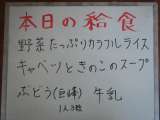 本日の給食
野菜たっぷりカラフルライス
キャベツときのこのスープ
ぶどう(巨峰) 牛乳
1人3粒